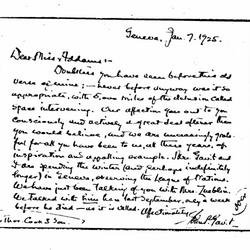 Geneva, Jan. 7. 1925.
Dear Miss Addams:—
Doubtless you have seen before this old
verse of mine; — never before anyway was it so
appropriate, with 5,000 miles of the delusion called
space intervening. Our affection goes out to you
consciously and actively a great deal oftener than
you would believe, and we are increasingly grate-
ful for all you have been to us, all these years, of
inspiration and example. Mrs. Gavit and
I are spending the winter (and perhaps indefinitely
longer) in Geneva, observing the League of Nations.
We have just been talking of you with Mrs.
We talked with him here last September, only a week
before he died — as it is called. Affectionately
John P. Gavit
Thos Cook & Son